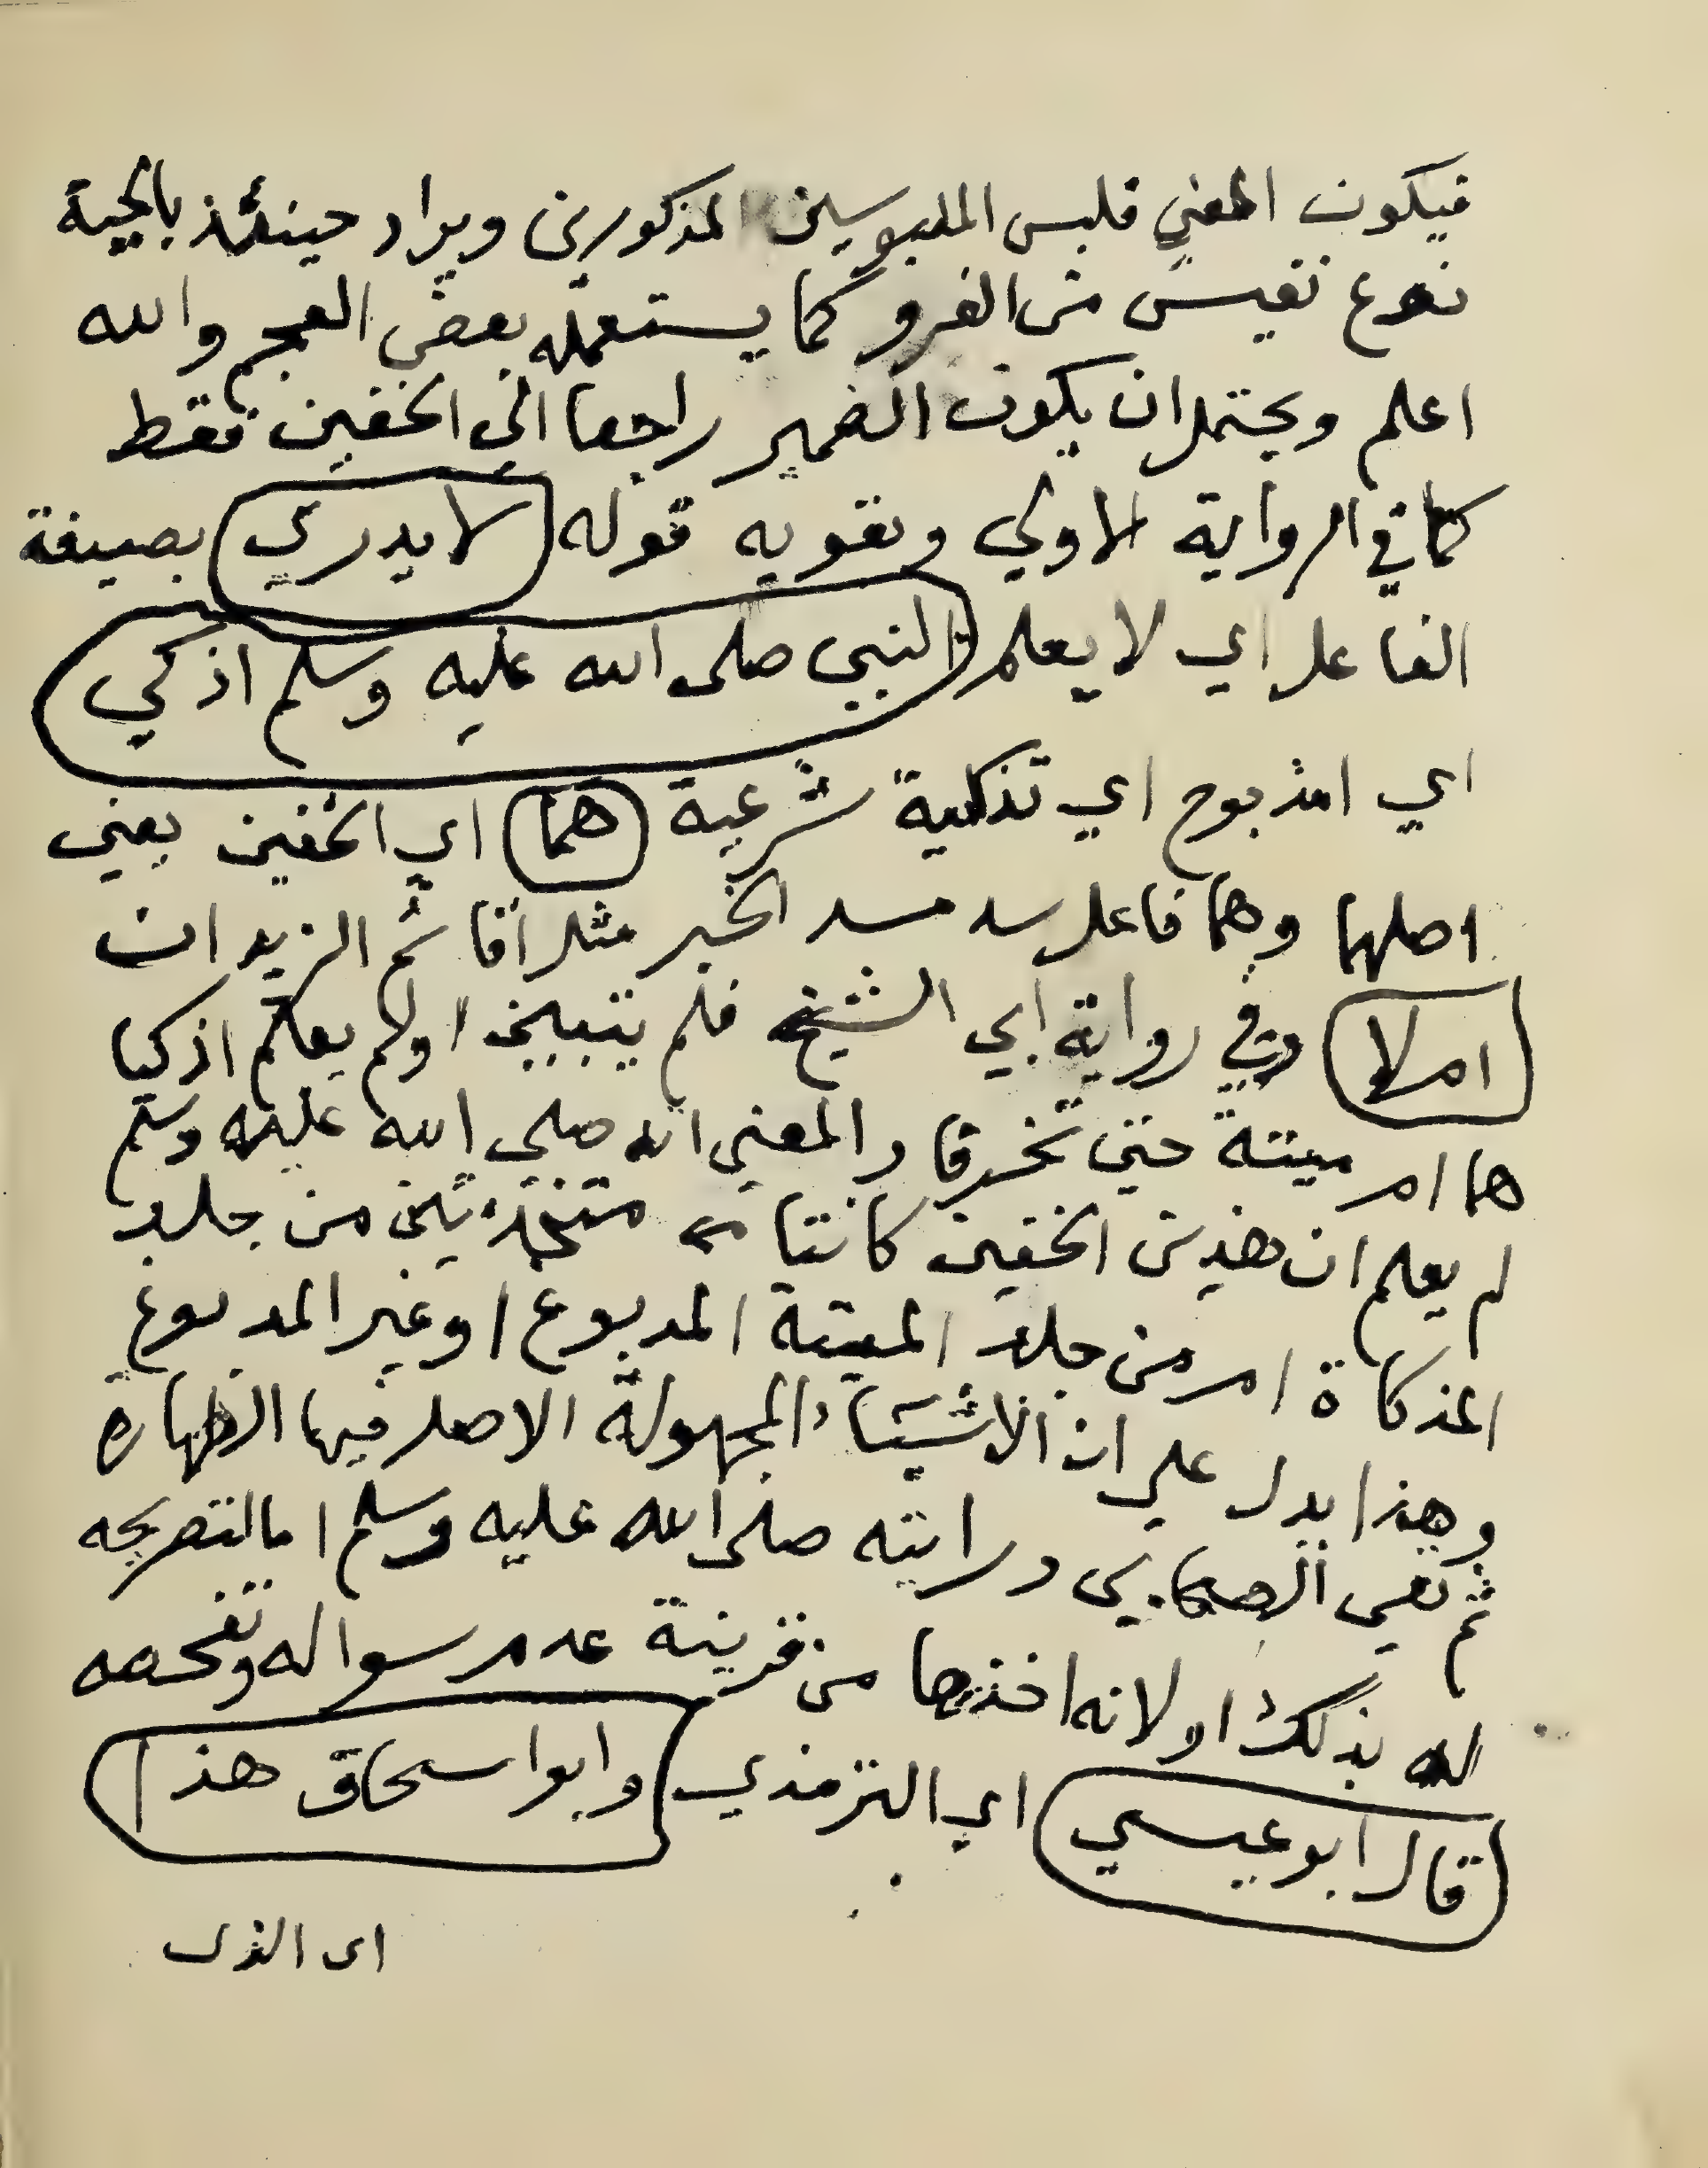 فيكون المعني فلبس الملبوسين المذكورين ويراد حينئذ بالجبة
نوع نفيس من الفرو كما يستعمله بعض العجم والله
اعلم ويحتمل ان يكون الضمير راجعا الي الخفين فقط
كما في الرواية الاولي ويقويه قوله لا يدري بصيغة
الفاعل اي لا يعلم النبي صلى الله عليه وسلم اذكي
اي امذبوح اي تذكية شرعية هما اي الخفين يعني
اصلهما وهما فاعل سد مسد الخبر مثل اقائم الزيدان
ام لا وفي رواية ابي الشيخ فلم يتبين اولم يعلم اذكيا
هما ام ميتة حتى تخرقا والمعني انه صلى الله عليه وسلم
لم يعلم ان هذين الخفين كانتا متخذتين من جلد
المذكاة ام من جلد الميتة المدبوغ او غير المدبوغ
وهذا يدل على ان الاشياء المجهولة الاصل فيها الطهارة
ثم نفي الصحابي درايته صلى الله عليه وسلم اما لتصريحه
له بذلك او لانه اخذها من قرينة عدم سواله وتفحصه
قال ابو عيسي اي الترمذي وابو اسحاق هذا
اى الذى